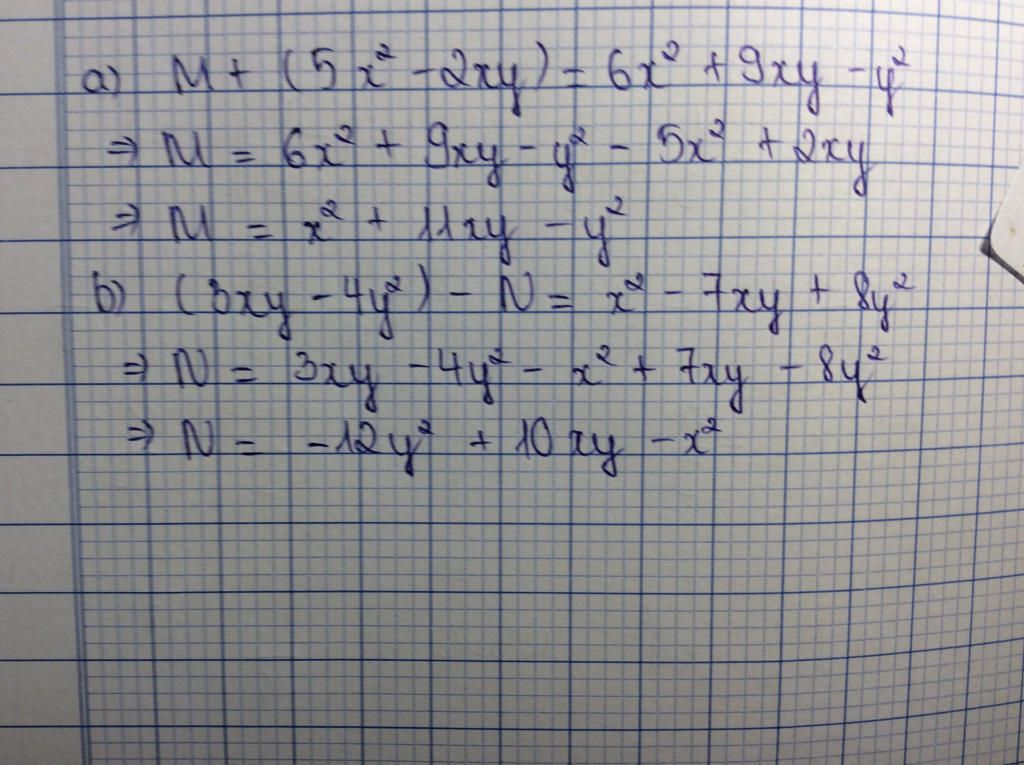 a) M + (5x² - 2xy) = 6x² + 9xy - y²
⇒ M = 6x² + 9xy - y² - 5x² + 2xy
⇒ M = x² + 11xy - y²
b) (3xy - 4y²) - N = x² - 7xy + 8y²
⇒ N = 3xy - 4y² - x² + 7xy - 8y²
⇒ N = -12y² + 10xy - x²